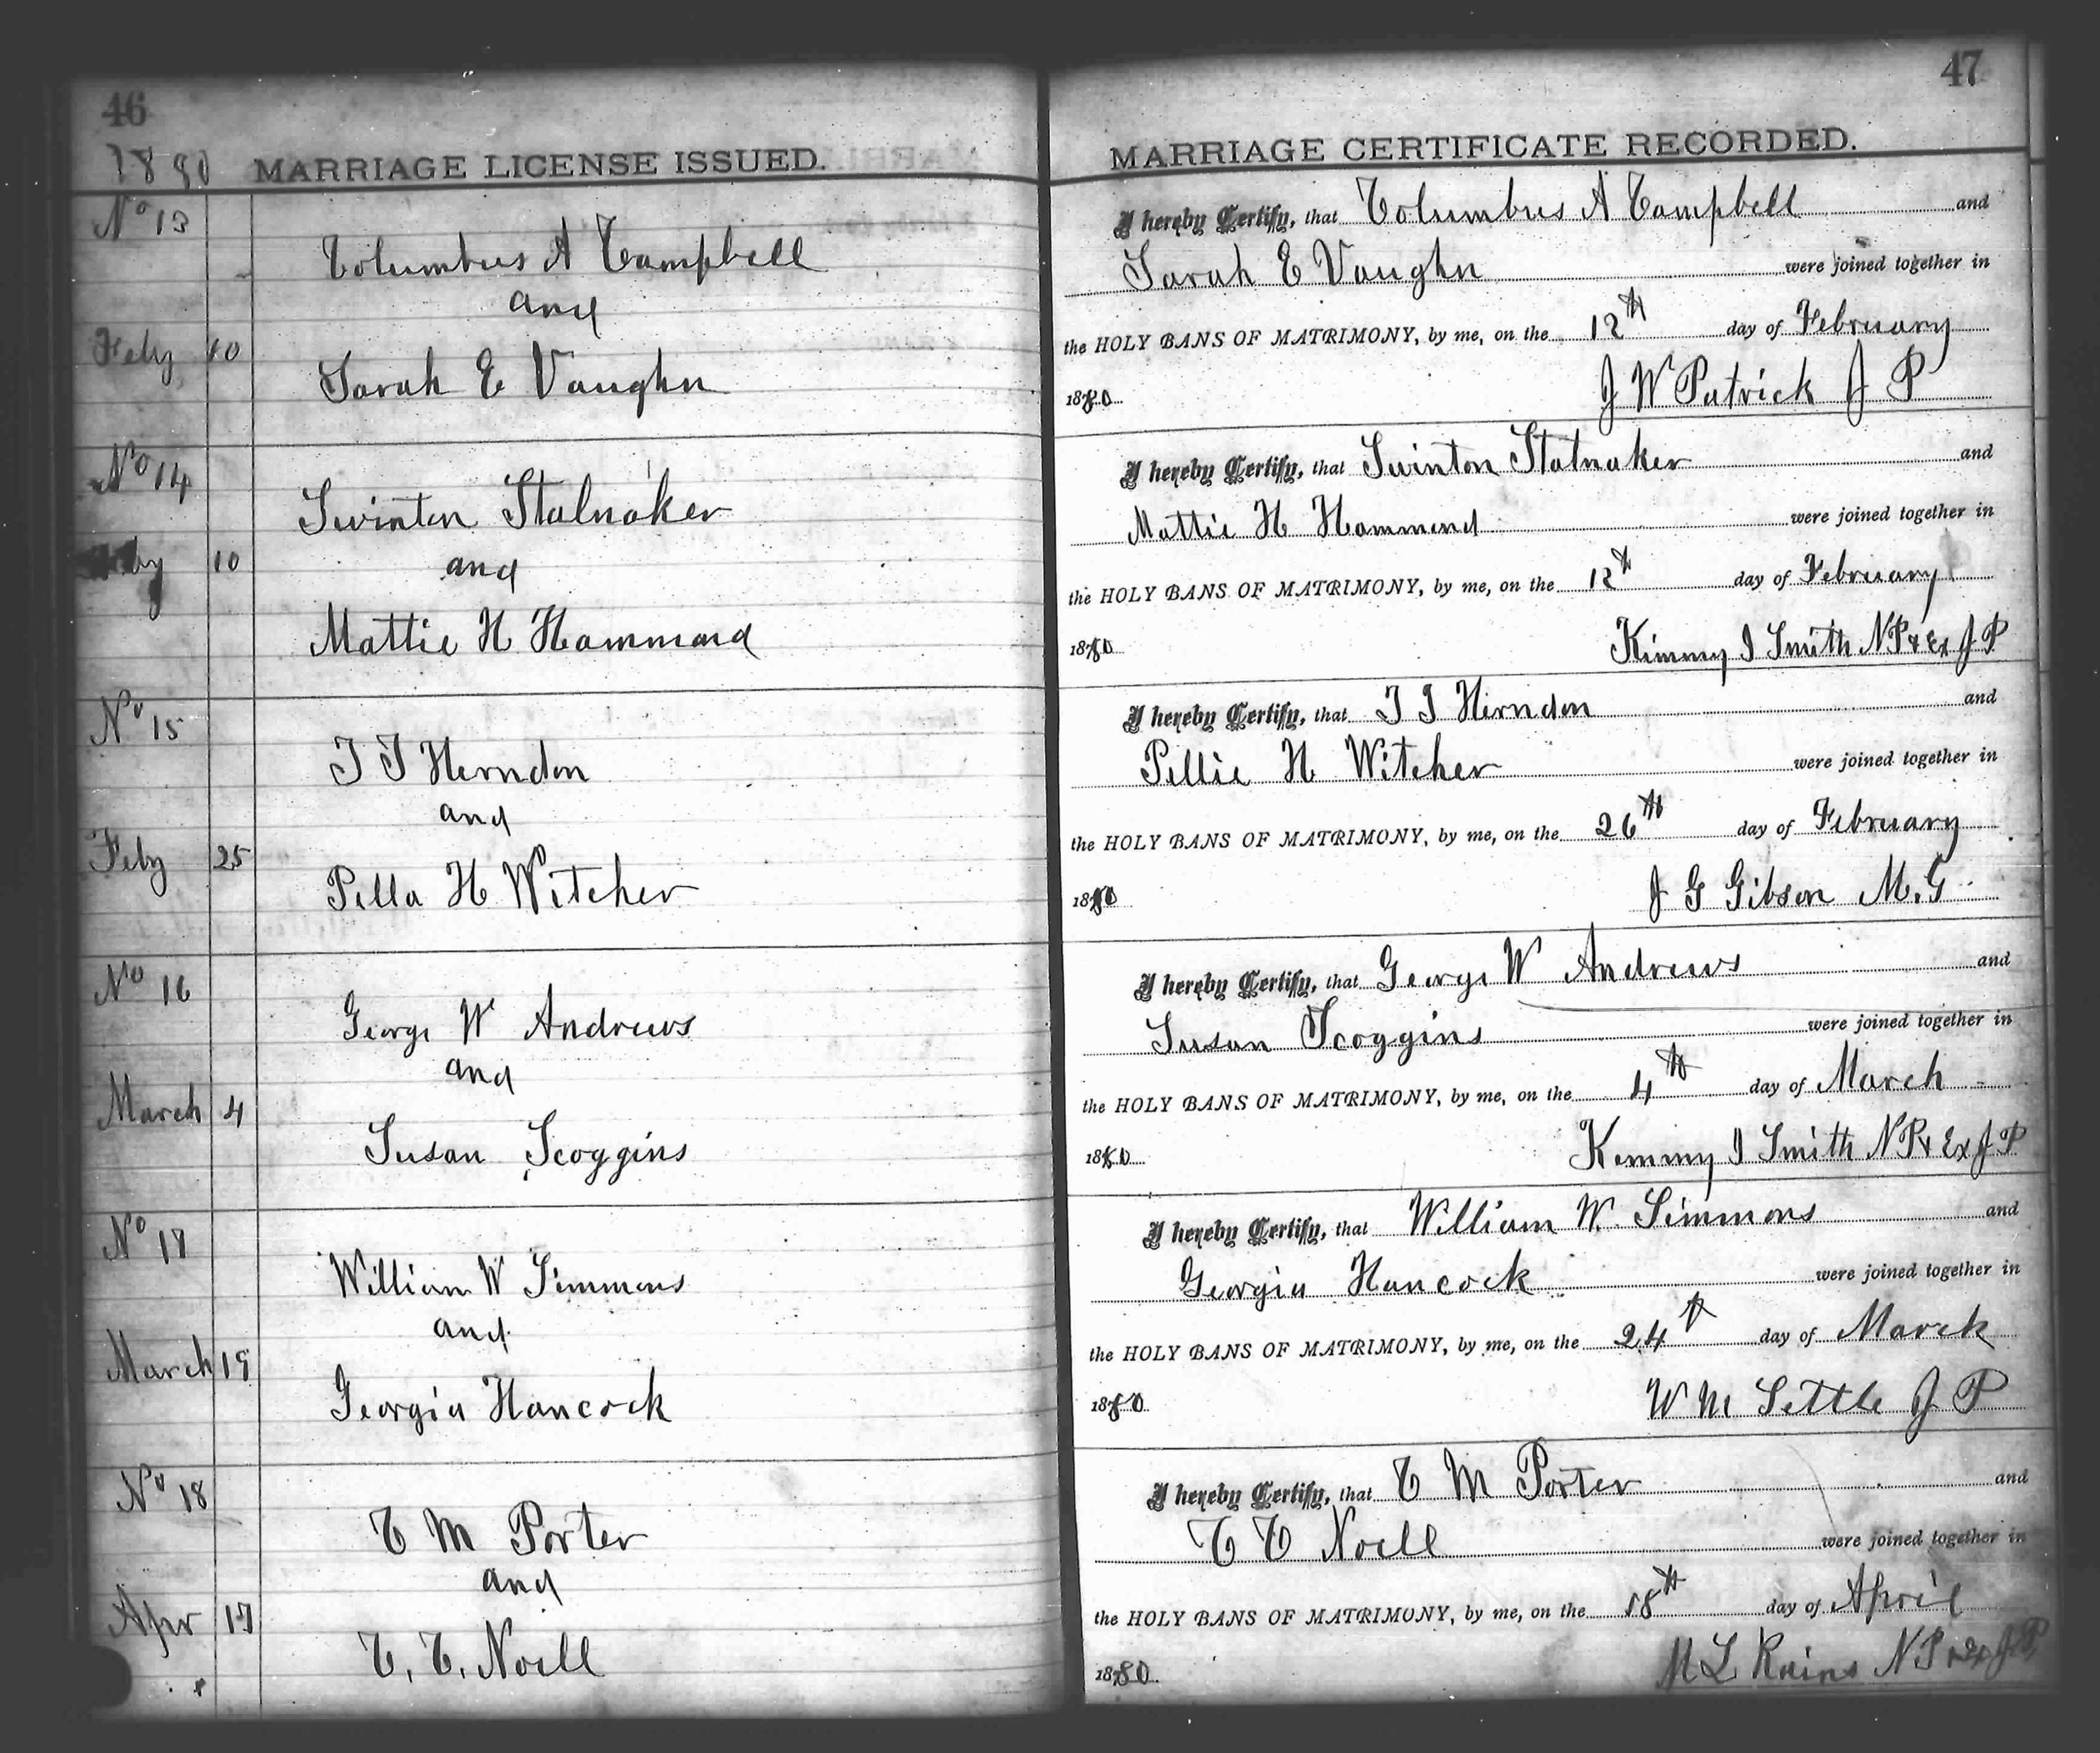 46
1880 MARRIAGE LICENSE ISSUED.
No 13
Columbus A Campbell
and
Feby 10
Sarah E Vaughn
No 14
Swinton Stalnaker
10
and
Mattie H Hammond
No 15
T J Herndon
and
Feby 25
Pella H Witcher
No 16
George W Andrews
and
March 4
Susan Scoggins
No 17
William W Simmons
and
March 19
Georgia Hancock
No 18
C M Porter
and
Apr 17
C. C. Noell
47
MARRIAGE CERTIFICATE RECORDED.
I hereby Certify, that Columbus A Campbell and
Sarah E Vaughn were joined together in
the HOLY BANS OF MATRIMONY, by me, on the 12th day of February
1880 J W Patrick J P
I hereby Certify, that Swinton Stalnaker and
Mattie H Hammond were joined together in
the HOLY BANS OF MATRIMONY, by me, on the 12th day of February
1880 Kimmy J Smith NP & Ex J P
I hereby Certify, that T J Herndon and
Pellie H Witcher were joined together in
the HOLY BANS OF MATRIMONY, by me, on the 26th day of February
1880 J G Gibson M.G
I hereby Certify, that George W Andrews and
Susan Scoggins were joined together in
the HOLY BANS OF MATRIMONY, by me, on the 4th day of March
1880 Kemmy J Smith NP & Ex J P
I hereby Certify, that William W. Simmons and
Georgia Hancock were joined together in
the HOLY BANS OF MATRIMONY, by me, on the 24th day of March
1880 W M Settle J P
I hereby Certify, that C M Porter and
C C Noell were joined together in
the HOLY BANS OF MATRIMONY, by me, on the 18th day of April
1880 M L Rains N P & Ex J P